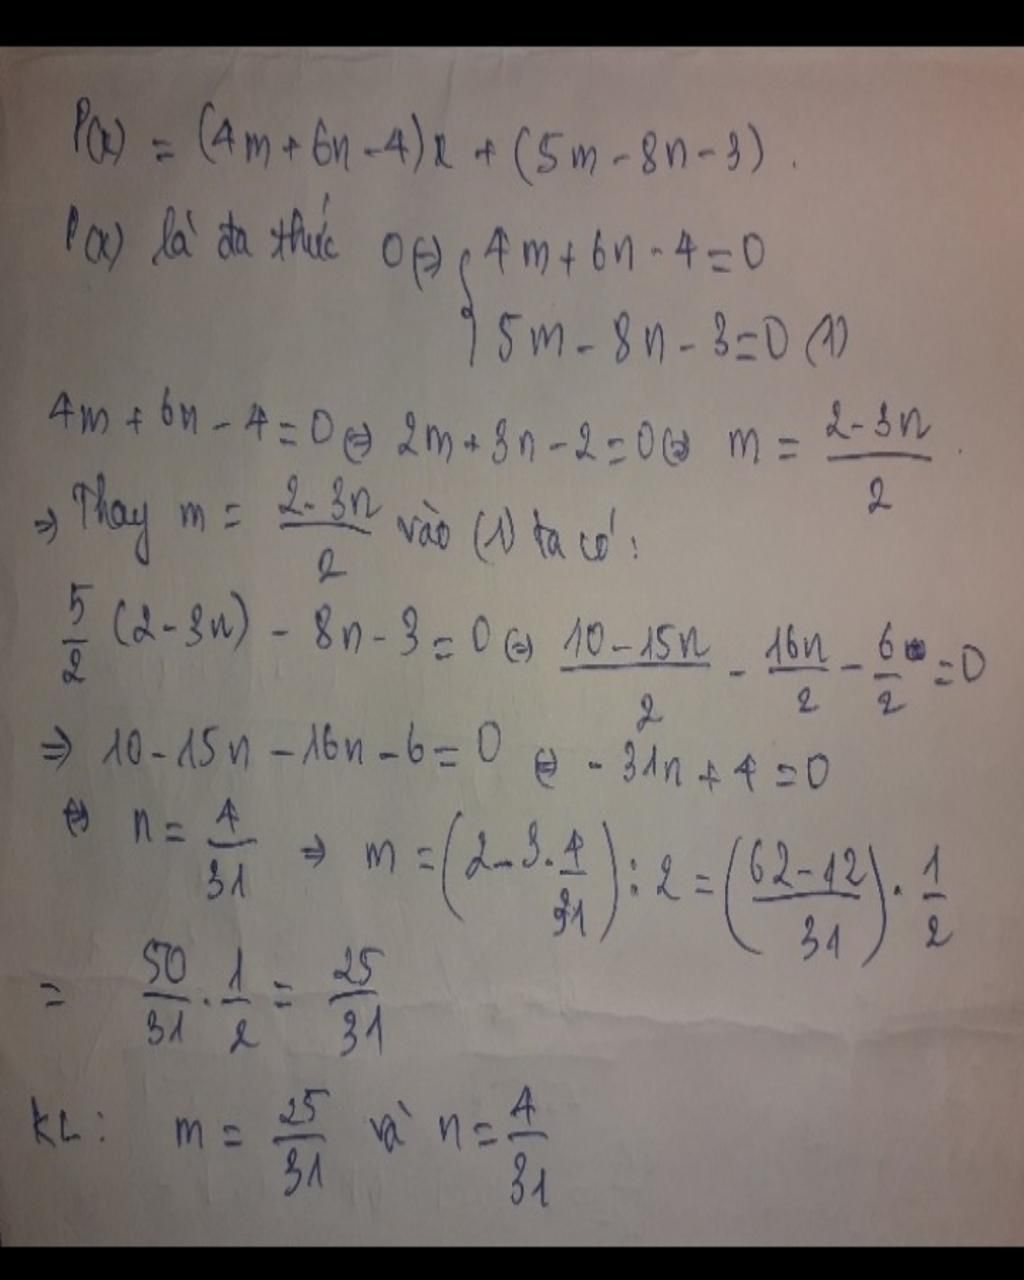 P(x) = (4m + 6n - 4)x + (5m - 8n - 3).
P(x) là đa thức 0 ⇔ { 4m + 6n - 4 = 0
5m - 8n - 3 = 0 (1)
4m + 6n - 4 = 0 ⇔ 2m + 3n - 2 = 0 ⇔ m = (2 - 3n)/2.
⇒ Thay m = (2 - 3n)/2 vào (1) ta có:
5/2 (2 - 3n) - 8n - 3 = 0 ⇔ (10 - 15n)/2 - 16n/2 - 6/2 = 0
⇒ 10 - 15n - 16n - 6 = 0 ⇔ - 31n + 4 = 0
⇔ n = 4/31 ⇒ m = (2 - 3 . 4/31) : 2 = ((62 - 12)/31) . 1/2
= 50/31 . 1/2 = 25/31
KL: m = 25/31 và n = 4/31